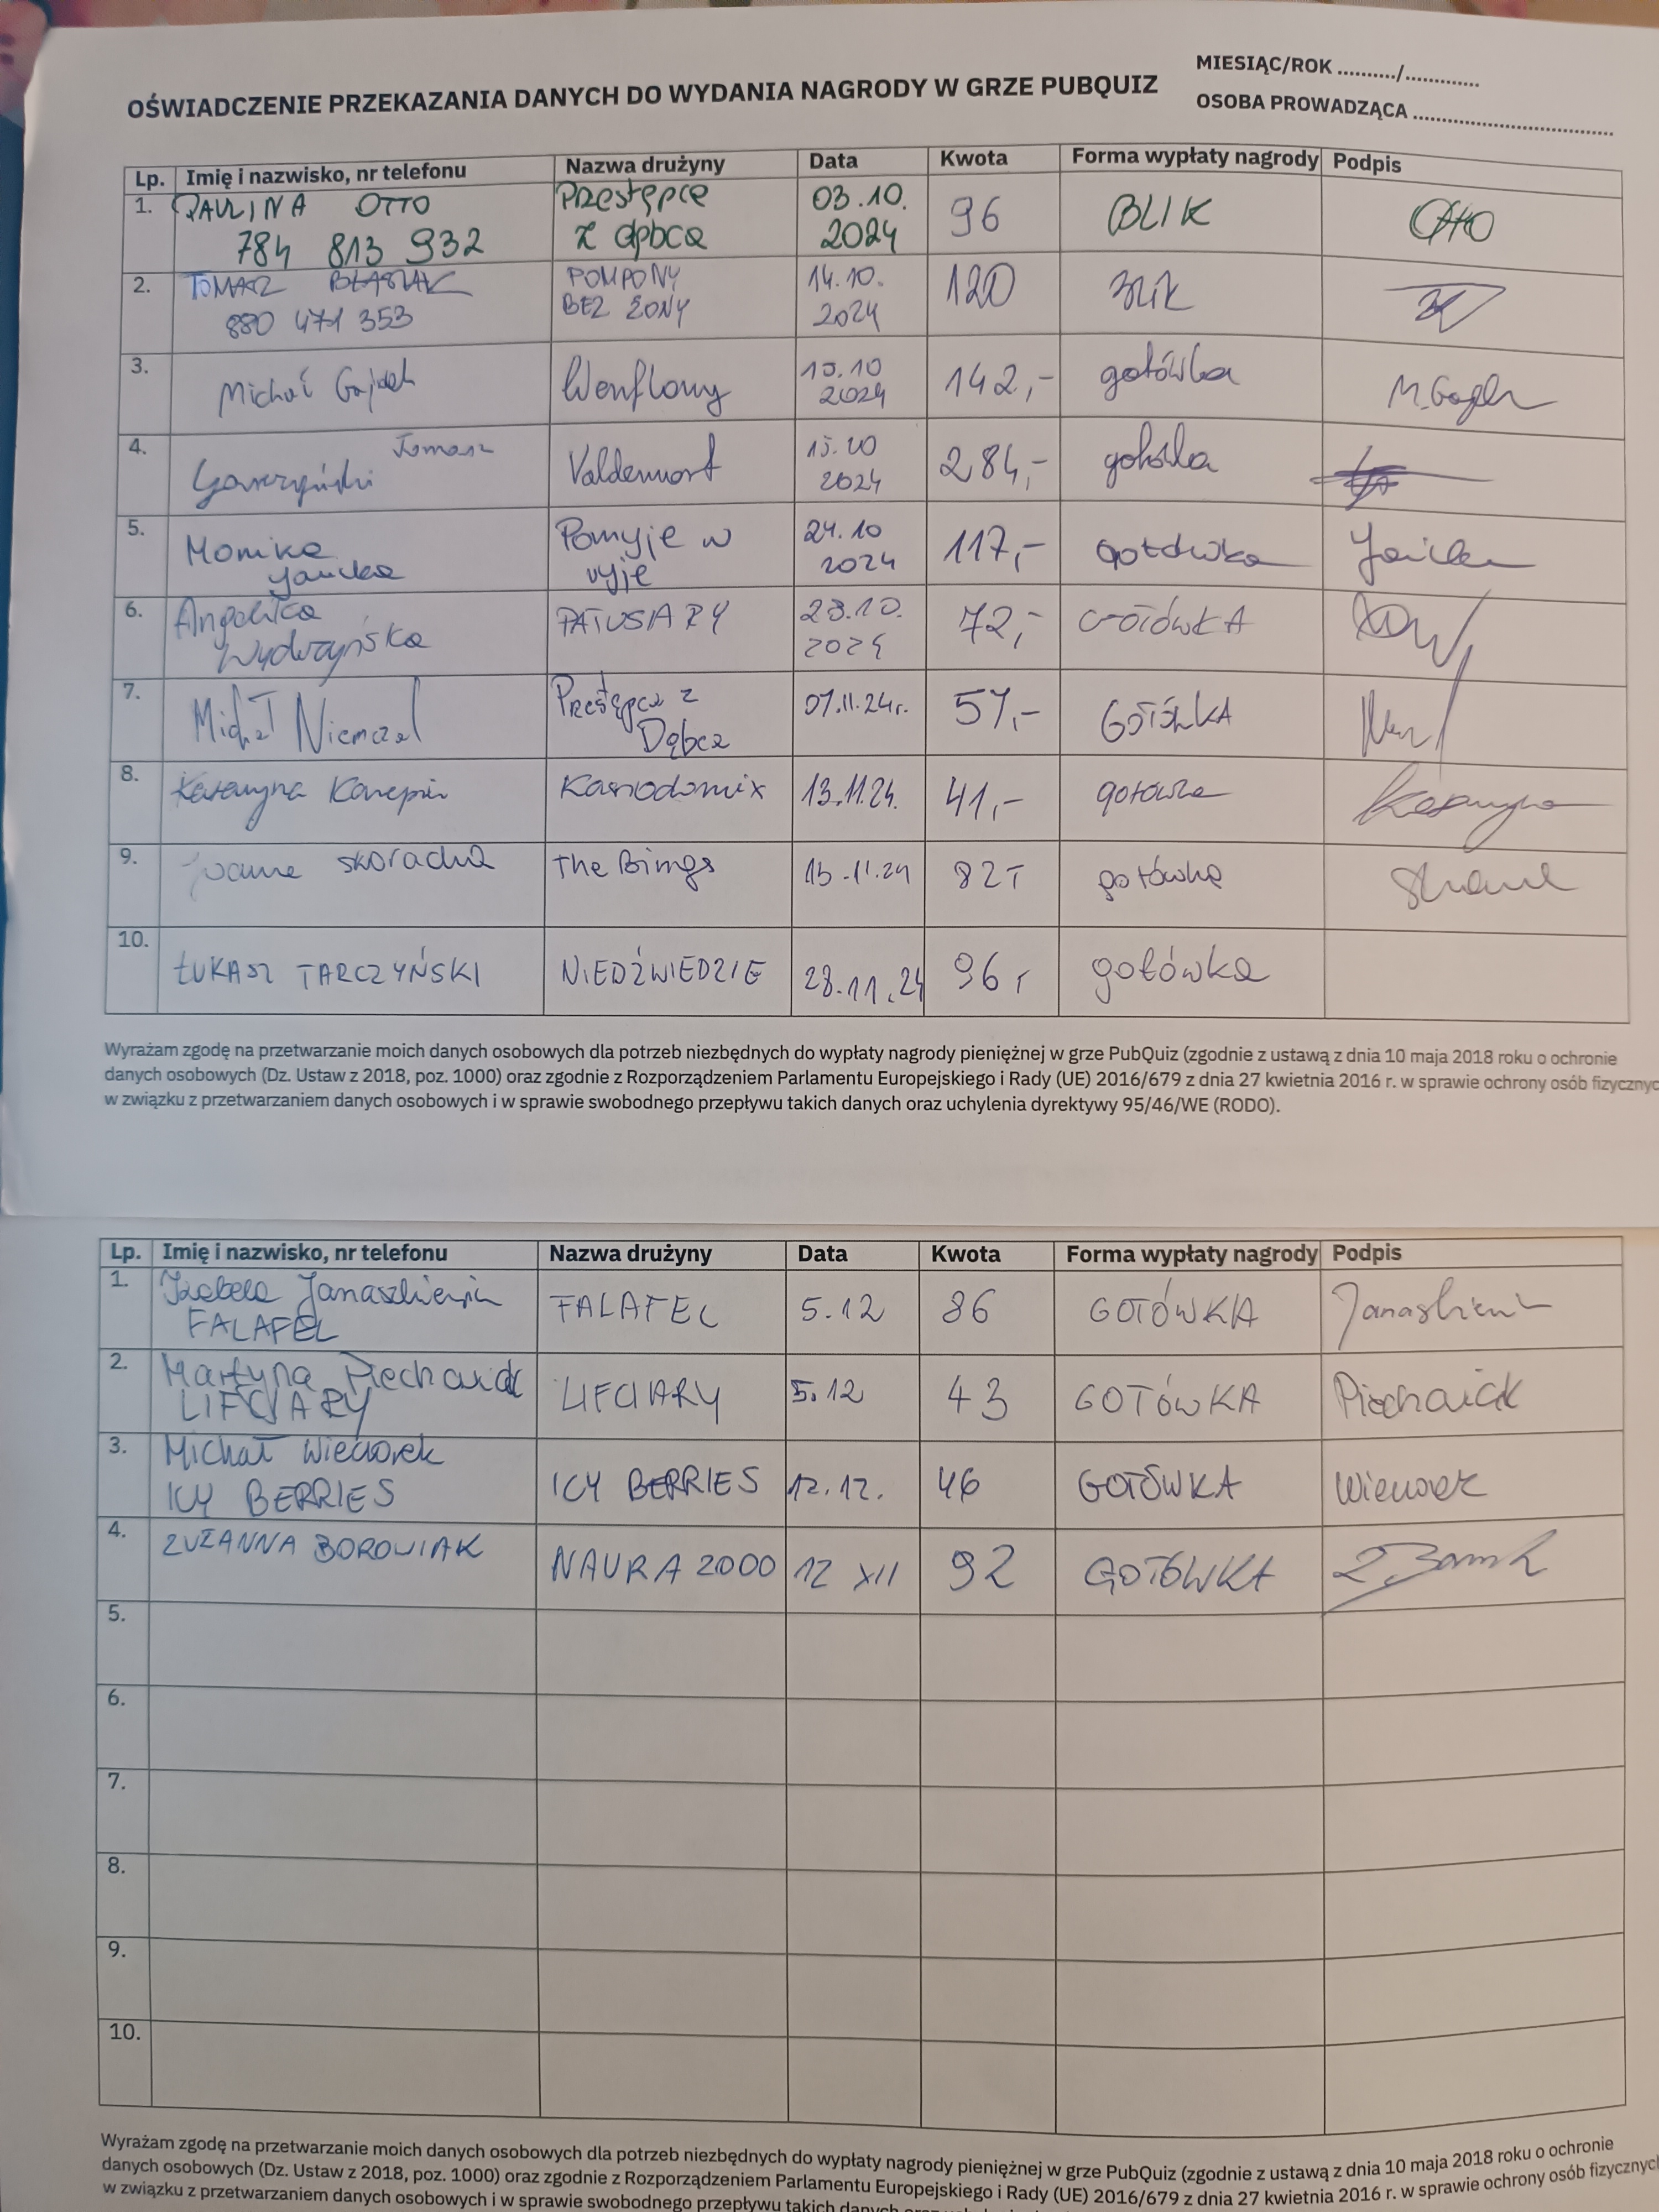 MIESIĄC/ROK ........../............
OŚWIADCZENIE PRZEKAZANIA DANYCH DO WYDANIA NAGRODY W GRZE PUBQUIZ
OSOBA PROWADZĄCA ................................
Lp. Imię i nazwisko, nr telefonu Nazwa drużyny Data Kwota Forma wypłaty nagrody Podpis
1. PAULINA OTTO Przestępce 03.10. 96 BLIK Otto
784 813 932 z dębca 2024
2. TOMASZ BŁASIAK POMPONY 14.10. 120 BLIK
880 471 353 BEZ ŻONY 2024
3. Michał Wenflony 15.10 142,- gotówka
2024
4. Tomasz Valdemort 15.10 284,- gotówka
2024
5. Monika Pomyje w 24.10 117,- gotówka
Janicka ryje 2024
6. Angelika PATUSIARY 28.10. 72,- GOTÓWKA
Wydrzyńska 2024
7. Michał Niemczal Przestępcz z 07.11.24r. 57,- GOTÓWKA
Dębca
8. Katarzyna 13.11.24. 41,- gotówka
9. skoracka The Bings 82 gotówka
10. ŁUKASZ TARCZYŃSKI NIEDŹWIEDZIE 28.11.24 96 gotówka
Wyrażam zgodę na przetwarzanie moich danych osobowych dla potrzeb niezbędnych do wypłaty nagrody pieniężnej w grze PubQuiz (zgodnie z ustawą z dnia 10 maja 2018 roku o ochronie
danych osobowych (Dz. Ustaw z 2018, poz. 1000) oraz zgodnie z Rozporządzeniem Parlamentu Europejskiego i Rady (UE) 2016/679 z dnia 27 kwietnia 2016 r. w sprawie ochrony osób fizycznyc
w związku z przetwarzaniem danych osobowych i w sprawie swobodnego przepływu takich danych oraz uchylenia dyrektywy 95/46/WE (RODO).
Lp. Imię i nazwisko, nr telefonu Nazwa drużyny Data Kwota Forma wypłaty nagrody Podpis
1. Izabela FALAFEL 5.12 86 GOTÓWKA
FALAFEL
2. Martyna Piechowiak LIFCIARY 5.12 43 GOTÓWKA
LIFCIARY
3. Michał Wieczorek ICY BERRIES 12.12. 46 GOTÓWKA Wieczorek
ICY BERRIES
4. ZUZANNA BOROWIAK NAURA 2000 12 XII 92 GOTÓWKA
5.
6.
7.
8.
9.
10.
Wyrażam zgodę na przetwarzanie moich danych osobowych dla potrzeb niezbędnych do wypłaty nagrody pieniężnej w grze PubQuiz (zgodnie z ustawą z dnia 10 maja 2018 roku o ochronie
danych osobowych (Dz. Ustaw z 2018, poz. 1000) oraz zgodnie z Rozporządzeniem Parlamentu Europejskiego i Rady (UE) 2016/679 z dnia 27 kwietnia 2016 r. w sprawie ochrony osób fizycznych
w związku z przetwarzaniem danych osobowych i w sprawie swobodnego przepływu takich danych